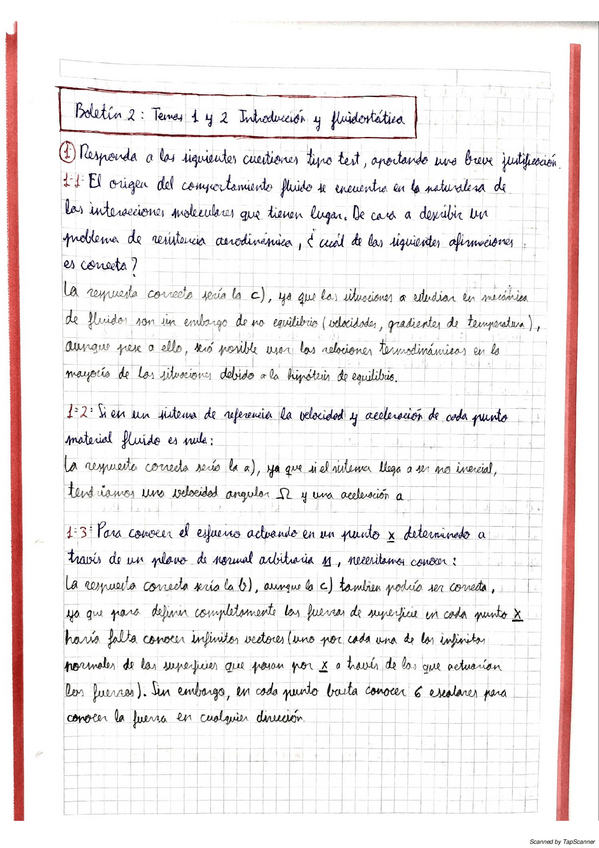 Boletín 2: Temas 1 y 2 Introducción y fluidostática
1 Responda a las siguientes cuestiones tipo test, aportando una breve justificación.
1.1: El origen del comportamiento fluido se encuentra en la naturaleza de
las interacciones moleculares que tienen lugar. De cara a describir un
problema de resistencia aerodinámica, ¿cuál de las siguientes afirmaciones
es correcta?
La respuesta correcta sería la c), ya que las situaciones a estudiar en mecánica
de fluidos son sin embargo de no equilibrio (velocidades, gradientes de temperatura),
aunque pese a ello, será posible usar las relaciones termodinámicas en la
mayoría de las situaciones debido a la hipótesis de equilibrio.
1.2: Si en un sistema de referencia la velocidad y aceleración de cada punto
material fluido es nula:
La respuesta correcta sería la a), ya que si el sistema llega a ser no inercial,
tendríamos una velocidad angular Ω y una aceleración a
1.3: Para conocer el esfuerzo actuando en un punto x determinado a
través de un plano de normal arbitraria n, necesitamos conocer:
La respuesta correcta sería la b), aunque la c) tambien podría ser correcta,
ya que para definir completamente las fuerzas de superficie en cada punto x
haría falta conocer infinitos vectores (uno por cada una de las infinitas
normales de las superficies que pasan por x a través de las que actuarían
las fuerzas). Sin embargo, en cada punto basta conocer 6 escalares para
conocer la fuerza en cualquier dirección.
Scanned by TapScanner